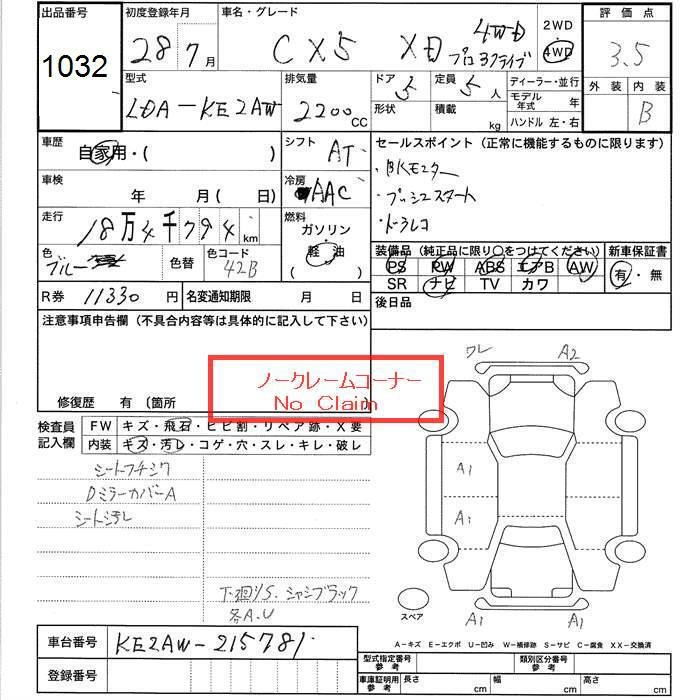 出品番号 初度登録年月 車名・グレード 2WD 評価点
1032 28年7月 CX5 XD 4WD プロアクティブ 4WD 3.5
型式 排気量 ドア 定員 ディーラー・並行 外装 内装
LDA-KE2AW 2200cc 5 5人 モデル年式 年 B
形状 積載 kg ハンドル 左・右
車歴 自家用・( ) シフト AT セールスポイント(正常に機能するものに限ります)
車検 年 月(日) 冷房 AAC ・BKモニター
・プッシュスタート
走行 18万4千794km 燃料 ガソリン ・ドラレコ
軽油
( )
色 ブルー 色替 色コード 42B 装備品(純正品に限り○をつけてください) 新車保証書
PS PW ABS エアB AW 有・無
SR ナビ TV カワ
R券 11330円 名変通知期限 月 日 後日品
注意事項申告欄(不具合内容等は具体的に記入して下さい)
ワレ A2
ノークレームコーナー
No Claim
修復歴 有(箇所
検査員記入欄 FW キズ・飛石・ヒビ割・リペア跡・X要
内装 キズ・汚レ・コゲ・穴・スレ・キレ・破レ
シートフチシワ A1
DミラーカバーA
シート汚レ A1
下廻りS.シャシブラック
各A.U
スペア A1 A1
車台番号 KE2AW-215781
A-キズ E-エクボ U-凹み W-補修跡 S-サビ C-腐食 XX-交換済
登録番号 型式指定番号 参考 類別区分番号 参考
車庫証明用 参考 長さ cm 幅 cm 高さ cm